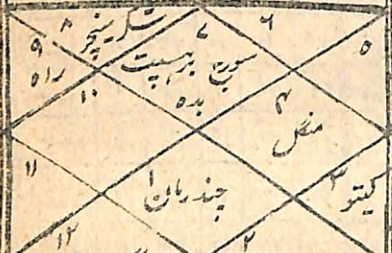 ۸ شکر سنیچر ۷ ۶ ۵
۹ راہ سورج برہسپت بدھ
۱۰ ۴ منگل
۱۱ چندرماں ۱ ۳ کیتو
۱۲ ۲